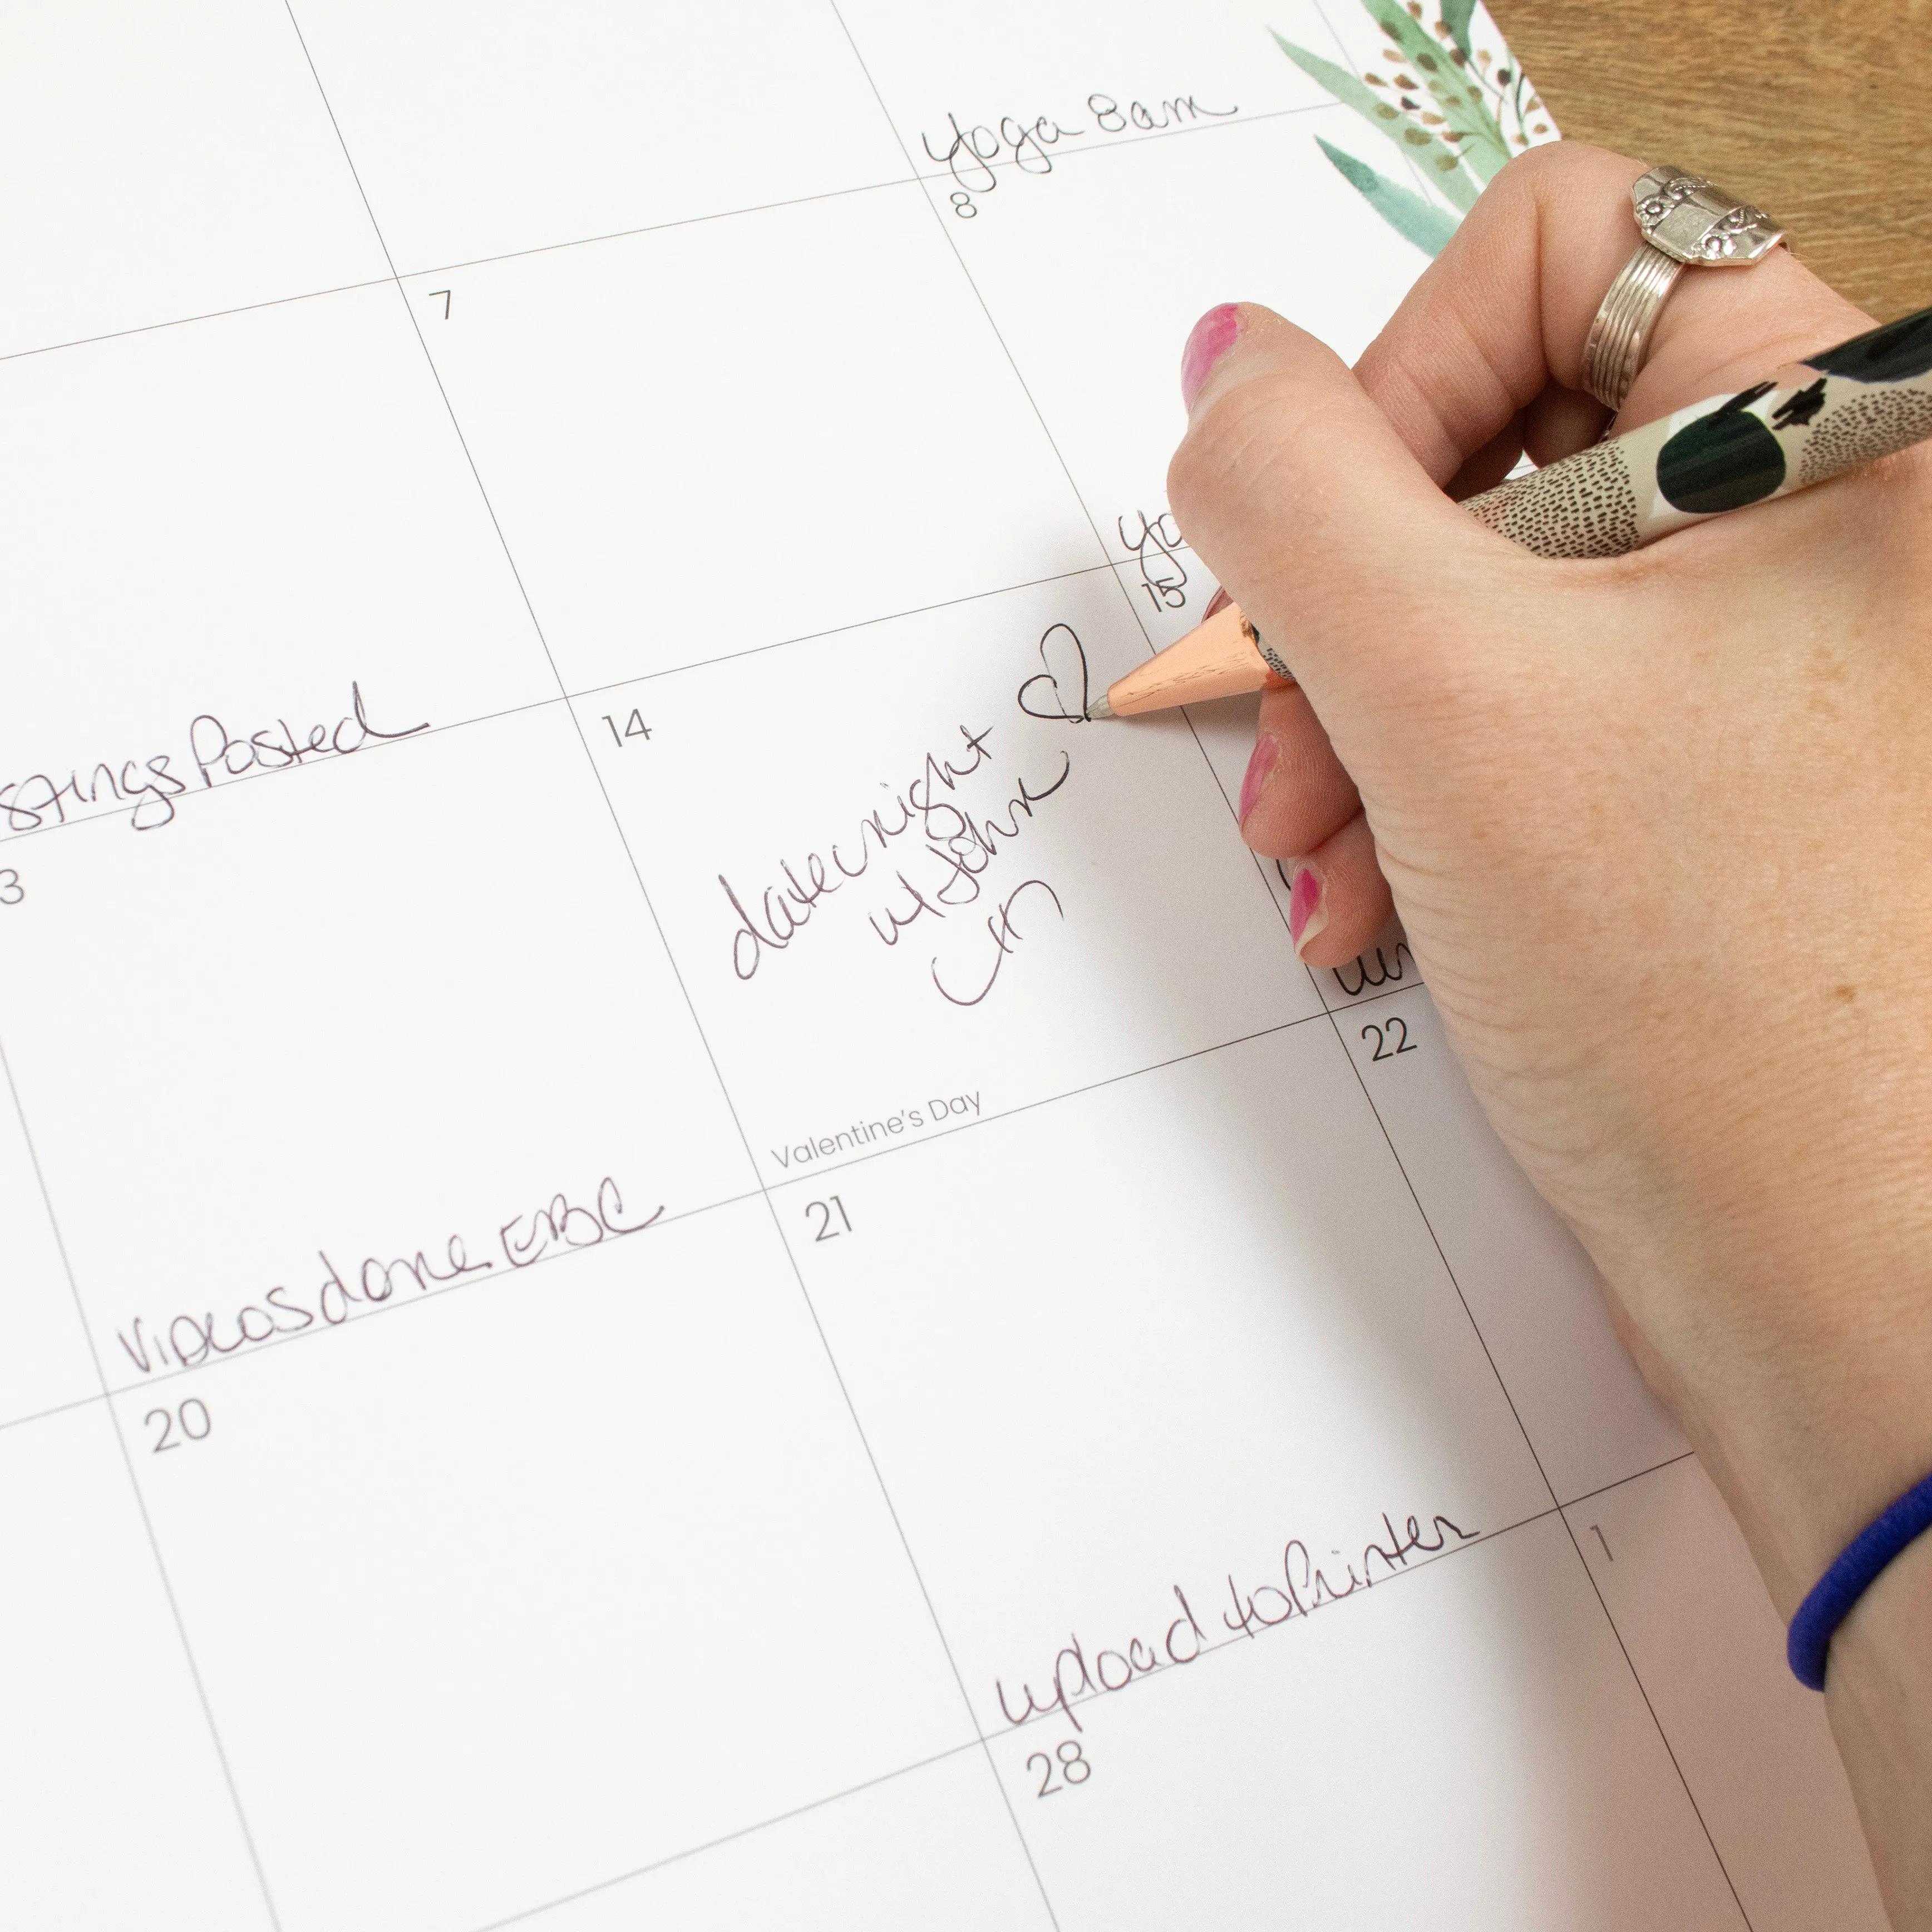 Yoga 8am
8
7
15
stings Posted
14
date night
w/ John
Valentine's Day
3
22
Videos done EBC
21
20
upload to Printer
1
28